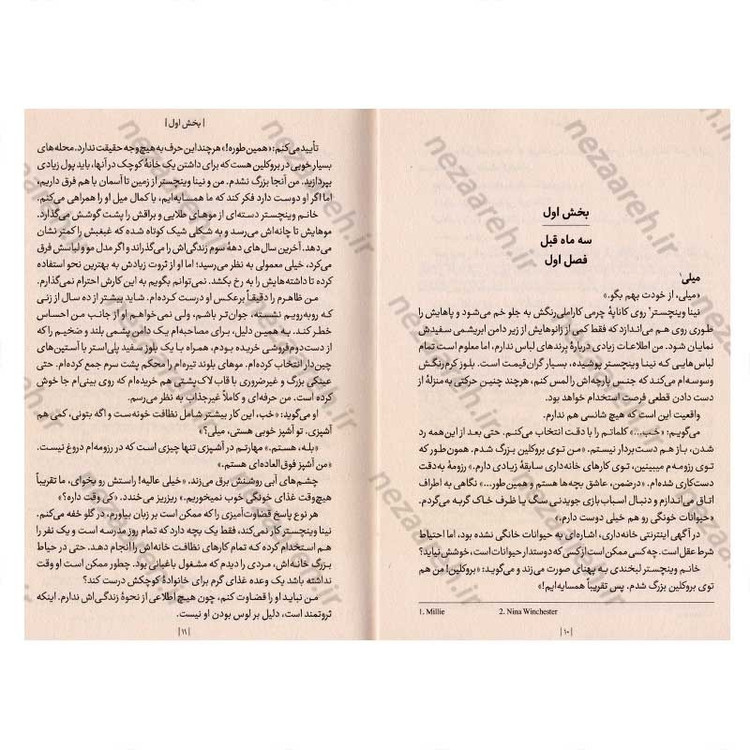 بخش اول
سه ماه قبل
فصل اول
میلی¹
«میلی، از خودت بهم بگو.»
نینا وینچستر² روی کاناپهٔ چرمی کاراملی‌رنگش به جلو خم می‌شود و پاهایش را
طوری روی هم می‌اندازد که فقط کمی از زانوهایش از زیر دامن ابریشمی سفیدش
نمایان شود. من اطلاعات زیادی دربارهٔ برندهای لباس ندارم، اما معلوم است تمام
لباس‌هایی که نینا وینچستر پوشیده، بسیار گران‌قیمت است. بلوز کرم‌رنگش
وسوسه‌ام می‌کند که جنس پارچه‌اش را لمس کنم، هرچند چنین حرکتی به‌منزلهٔ از
دست دادن قطعی فرصت استخدام خواهد بود.
واقعیت این است که هیچ شانسی هم ندارم.
می‌گویم: «خب...» کلماتم را با دقت انتخاب می‌کنم. حتی بعد از این‌همه رد
شدن، باز هم دست‌بردار نیستم. «من توی بروکلین بزرگ شدم. همون‌طور که
توی رزومه‌م میبینین، من توی کارهای خانه‌داری سابقهٔ زیادی دارم.» رزومهٔ به‌دقت
دست‌کاری شده‌ام. «درضمن، عاشق بچه‌ها هستم و همین‌طور...» نگاهی به اطراف
اتاق می‌اندازم و دنبال اسباب‌بازی جویدنی سگ یا ظرف خاک گربه می‌گردم.
«حیوانات خونگی رو هم خیلی دوست دارم.»
در آگهی اینترنتی خانه‌داری، اشاره‌ای به حیوانات خانگی نشده بود، اما احتیاط
شرط عقل است. چه کسی ممکن است از کسی که دوستدار حیوانات است، خوشش نیاید؟
خانم وینچستر لبخندی به پهنای صورت می‌زند و می‌گوید: «بروکلین! من هم
توی بروکلین بزرگ شدم. پس تقریباً همسایه‌ایم!»
1. Millie 2. Nina Winchester
|۱۰|
| بخش اول |
تأیید می‌کنم: «همین‌طوره!» هرچند این حرف به هیچ وجه حقیقت ندارد. محله‌های
بسیار خوبی در بروکلین هست که برای داشتن یک خانهٔ کوچک در آنها، باید پول زیادی
بپردازید. من آنجا بزرگ نشدم. من و نینا وینچستر از زمین تا آسمان با هم فرق داریم،
اما اگر او دوست دارد فکر کند که ما همسایه‌ایم، با کمال میل او را همراهی می‌کنم.
خانم وینچستر دسته‌ای از موهای طلایی و براقش را پشت گوشش می‌گذارد.
موهایش تا چانه‌اش می‌رسد و به شکلی شیک کوتاه شده که غبغبش را کمتر نشان
می‌دهد. آخرین سال‌های دههٔ سوم زندگی‌اش را می‌گذراند و اگر مدل مو و لباسش فرق
می‌کرد، خیلی معمولی به نظر می‌رسید؛ اما او از ثروت زیادش به بهترین نحو استفاده
کرده تا داشته‌هایش را به رخ بکشد. نمی‌توانم بگویم به این کارش احترام نمی‌گذارم.
من ظاهرم را دقیقاً برعکس او درست کرده‌ام. شاید بیشتر از ده سال از زنی
که روبه‌رویم نشسته، جوان‌تر باشم، ولی نمی‌خواهم او از جانب من احساس
خطر کند. به همین دلیل، برای مصاحبه‌ام یک دامن پشمی بلند و ضخیم را که
از دست‌دوم‌فروشی خریده بودم، همراه با یک بلوز سفید پلی‌استر با آستین‌های
چین‌دار انتخاب کرده‌ام. موهای بلوند تیره‌ام را محکم پشت سرم جمع کرده‌ام. حتی
عینکی بزرگ و غیرضروری با قاب لاک‌پشتی هم خریده‌ام که روی بینی‌ام جا خوش
کرده است. من حرفه‌ای و کاملاً غیرجذاب به نظر می‌رسم.
او می‌گوید: «خب، این کار بیشتر شامل نظافت خونه‌ست و اگه بتونی، کمی هم
آشپزی. تو آشپز خوبی هستی، میلی؟»
«بله، هستم.» مهارتم در آشپزی تنها چیزی است که در رزومه‌ام دروغ نیست.
«من آشپز فوق‌العاده‌ای هستم.»
چشم‌های آبی روشنش برق می‌زند، «خیلی عالیه! راستش رو بخوای، ما تقریباً
هیچ‌وقت غذای خونگی خوب نمیخوریم.» ریزریز می‌خندد. «کی وقت داره؟»
هر نوع پاسخ قضاوت‌آمیزی را که ممکن است بر زبان بیاورم، در گلو خفه می‌کنم.
نینا وینچستر کار نمی‌کند، فقط یک بچه دارد که تمام روز مدرسه است و یک نفر را
هم استخدام کرده که تمام کارهای نظافت خانه‌اش را انجام دهد. حتی در حیاط
بزرگ خانه‌اش، مردی را دیدم که مشغول باغبانی بود. چطور ممکن است او وقت
نداشته باشد یک وعده غذای گرم برای خانوادهٔ کوچکش درست کند؟
من نباید او را قضاوت کنم، چون هیچ اطلاعی از نحوهٔ زندگی‌اش ندارم. اینکه
ثروتمند است، دلیل بر لوس بودن او نیست.
|۱۱|
nezaareh.ir